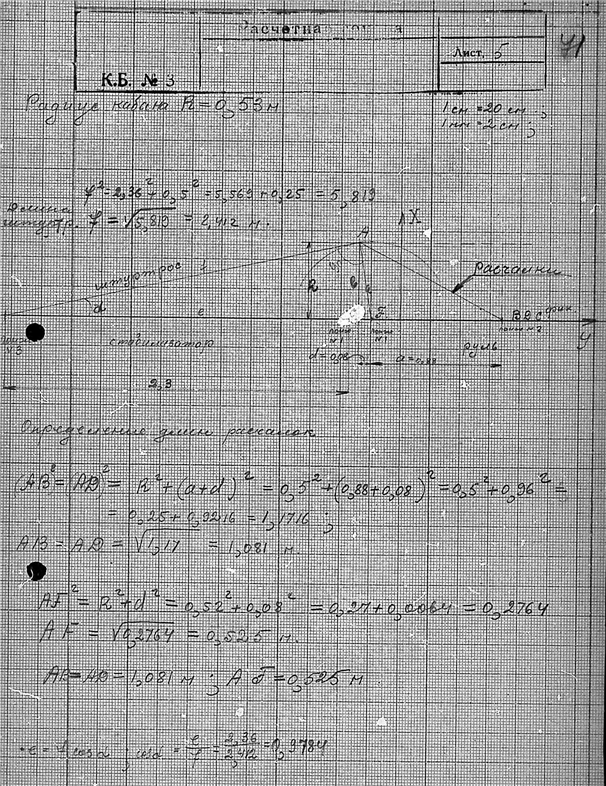 Расчетная
К.Б. № 3
Лист. 5
71
Радиус кабана R = 0,53 м
1 см = 20 см ;
1 мм = 2 см ;
f² = 2,36² + 0,5² = 5,569 + 0,25 = 5,819
Длина
штуртр. f = √5,819 = 2,412 м.
X
A
расчалки
штуртрос f
R
d
e
B D C
y
N 3
N 1
N 1
N 2
стабилизатор
d = 0,08
a = 0,88
руль
2,3
Определение длин расчалок
(AB)² = (AD)² = R² + (a+d)² = 0,5² + (0,88 + 0,08)² = 0,5² + 0,96² =
= 0,25 + 0,9216 = 1,1716 ;
AB = AD = √1,17 = 1,081 м.
AF² = R² + d² = 0,52² + 0,08² = 0,27 + 0,0064 = 0,2764
AF = √0,2764 = 0,525 м.
AB = AD = 1,081 м ; AF = 0,525 м
e = f cos α ; cos α = e/f = 2,36/2,412 = 0,9784